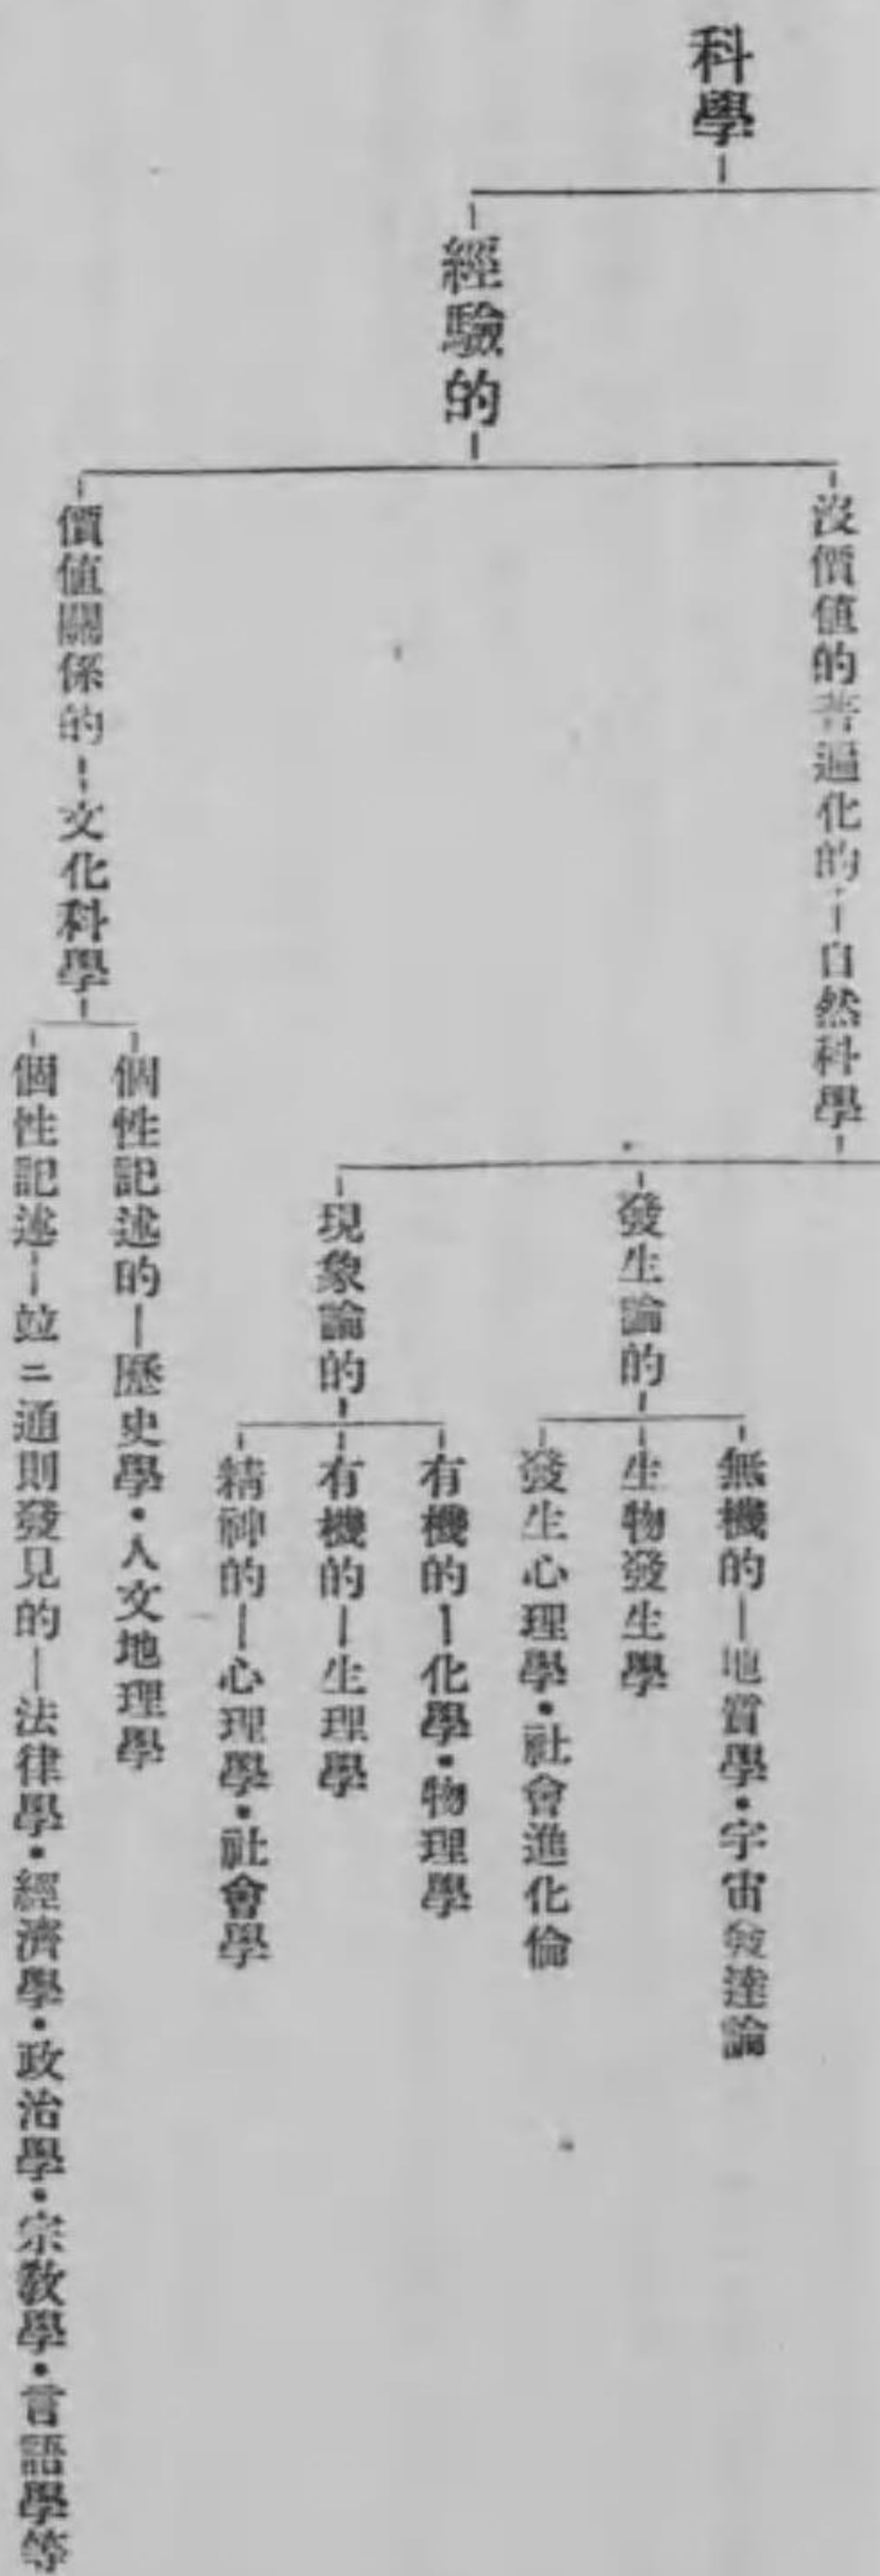 科學
經驗的
沒價値的普遍化的—自然科學
發生論的
無機的—地質學・宇宙發達論
生物發生學
發生心理學・社會進化倫
現象論的
有機的—化學・物理學
有機的—生理學
精神的—心理學・社會學
價値關係的—文化科學
個性記述的—歷史學・人文地理學
個性記述—竝ニ通則發見的—法律學・經濟學・政治學・宗敎學・言語學等